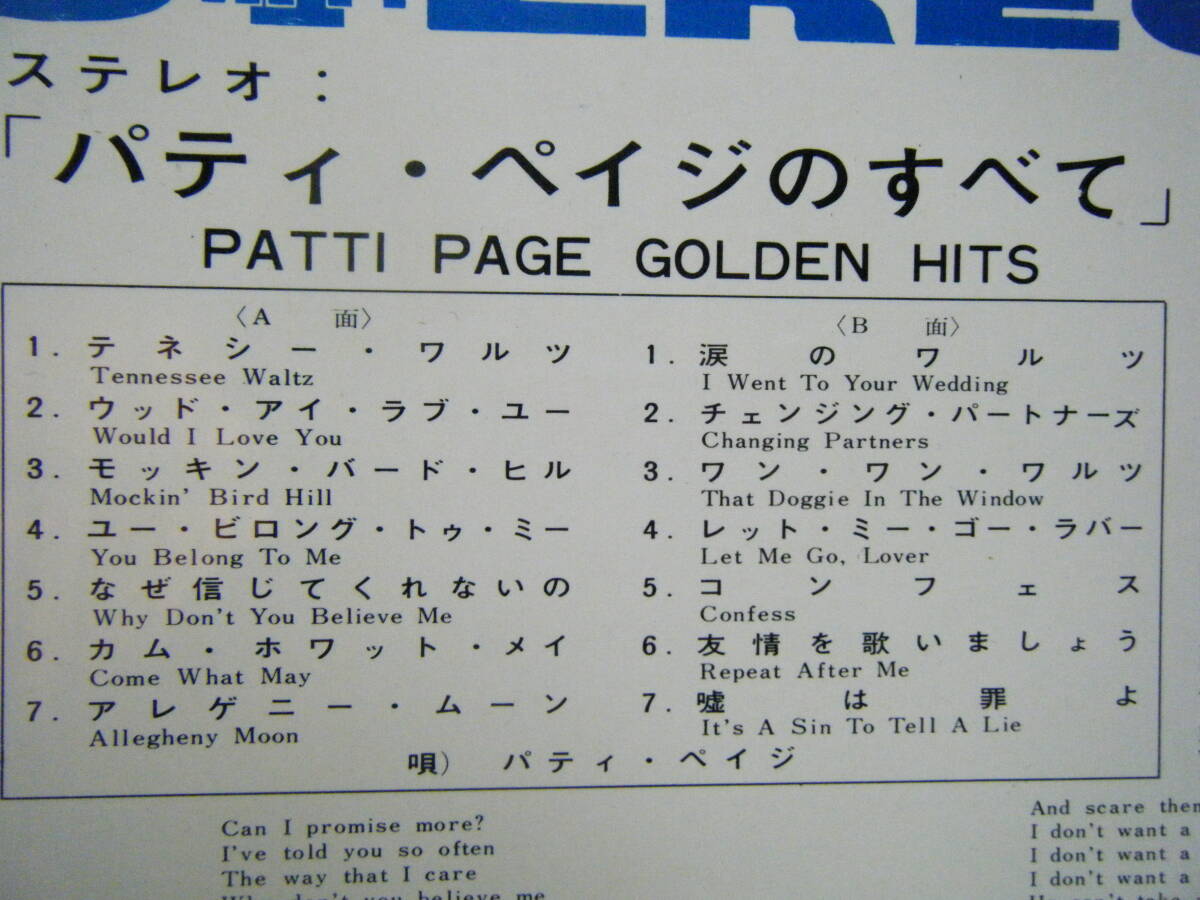 ステレオ:
「パティ・ペイジのすべて」
PATTI PAGE GOLDEN HITS
〈A 面〉
1. テネシー・ワルツ
Tennessee Waltz
2. ウッド・アイ・ラブ・ユー
Would I Love You
3. モッキン・バード・ヒル
Mockin' Bird Hill
4. ユー・ビロング・トゥ・ミー
You Belong To Me
5. なぜ信じてくれないの
Why Don't You Believe Me
6. カム・ホワット・メイ
Come What May
7. アレゲニー・ムーン
Allegheny Moon
〈B 面〉
1. 涙のワルツ
I Went To Your Wedding
2. チェンジング・パートナーズ
Changing Partners
3. ワン・ワン・ワルツ
That Doggie In The Window
4. レット・ミー・ゴー・ラバー
Let Me Go, Lover
5. コンフェス
Confess
6. 友情を歌いましょう
Repeat After Me
7. 嘘は罪よ
It's A Sin To Tell A Lie
唄) パティ・ペイジ
Can I promise more?
I've told you so often
The way that I care
Why don't you believe me
And scare them
I don't want a
I don't want a
I don't want a